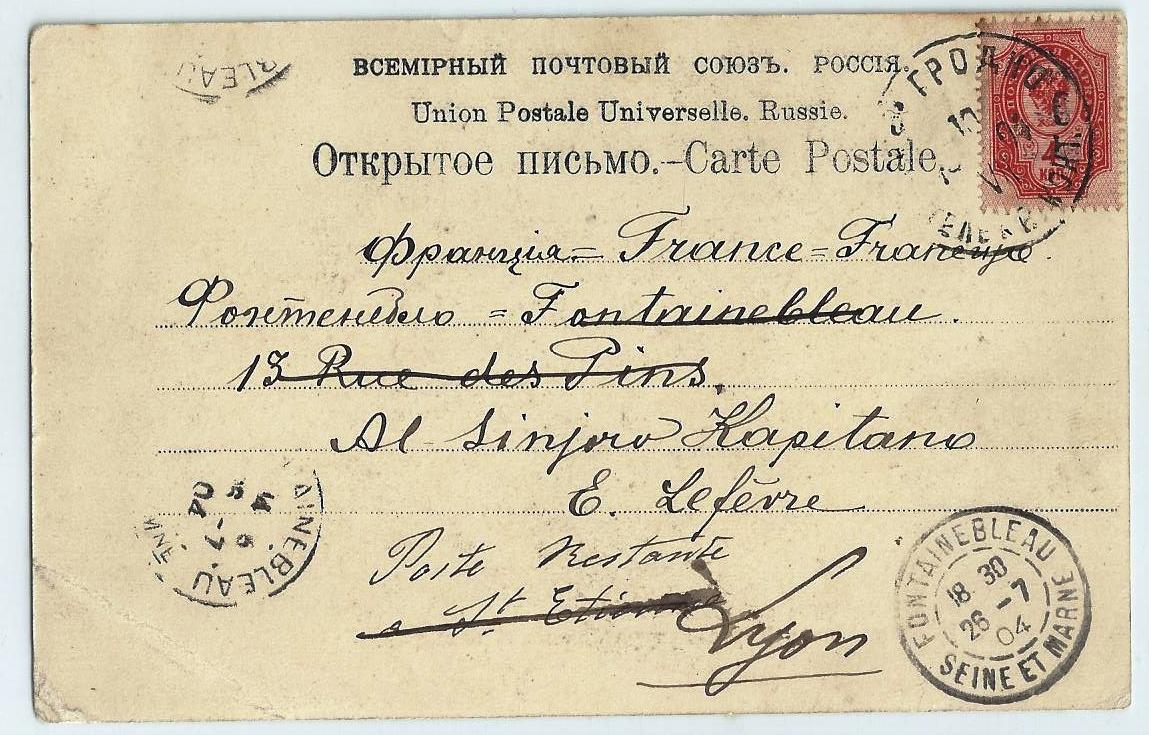 ВСЕМІРНЫЙ ПОЧТОВЫЙ СОЮЗЪ. РОССІЯ.
Union Postale Universelle. Russie.
Открытое письмо.-Carte Postale.
ГРОДНО
ПОЧТ.
10
4
КОП
BLEAU
Франція = France =
Фонтенебло = Fontainebleau.
13 Rue des Pins.
Al Sinjoro Kapitano
E. Lefèvre
Poste Restante
a St Etienne
Lyon
AINEBLEAU
04
FONTAINEBLEAU
18 30
26 -7
04
SEINE ET MARNE